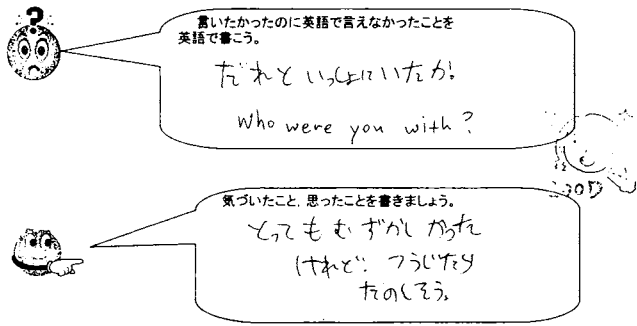 ?
言いたかったのに英語で言えなかったことを
英語で書こう。
だれと いっしょにいたか。
Who were you with?
GOOD
気づいたこと、思ったことを書きましょう。
とっても むずかしかった
けれど、つうじたら
たのしそう。